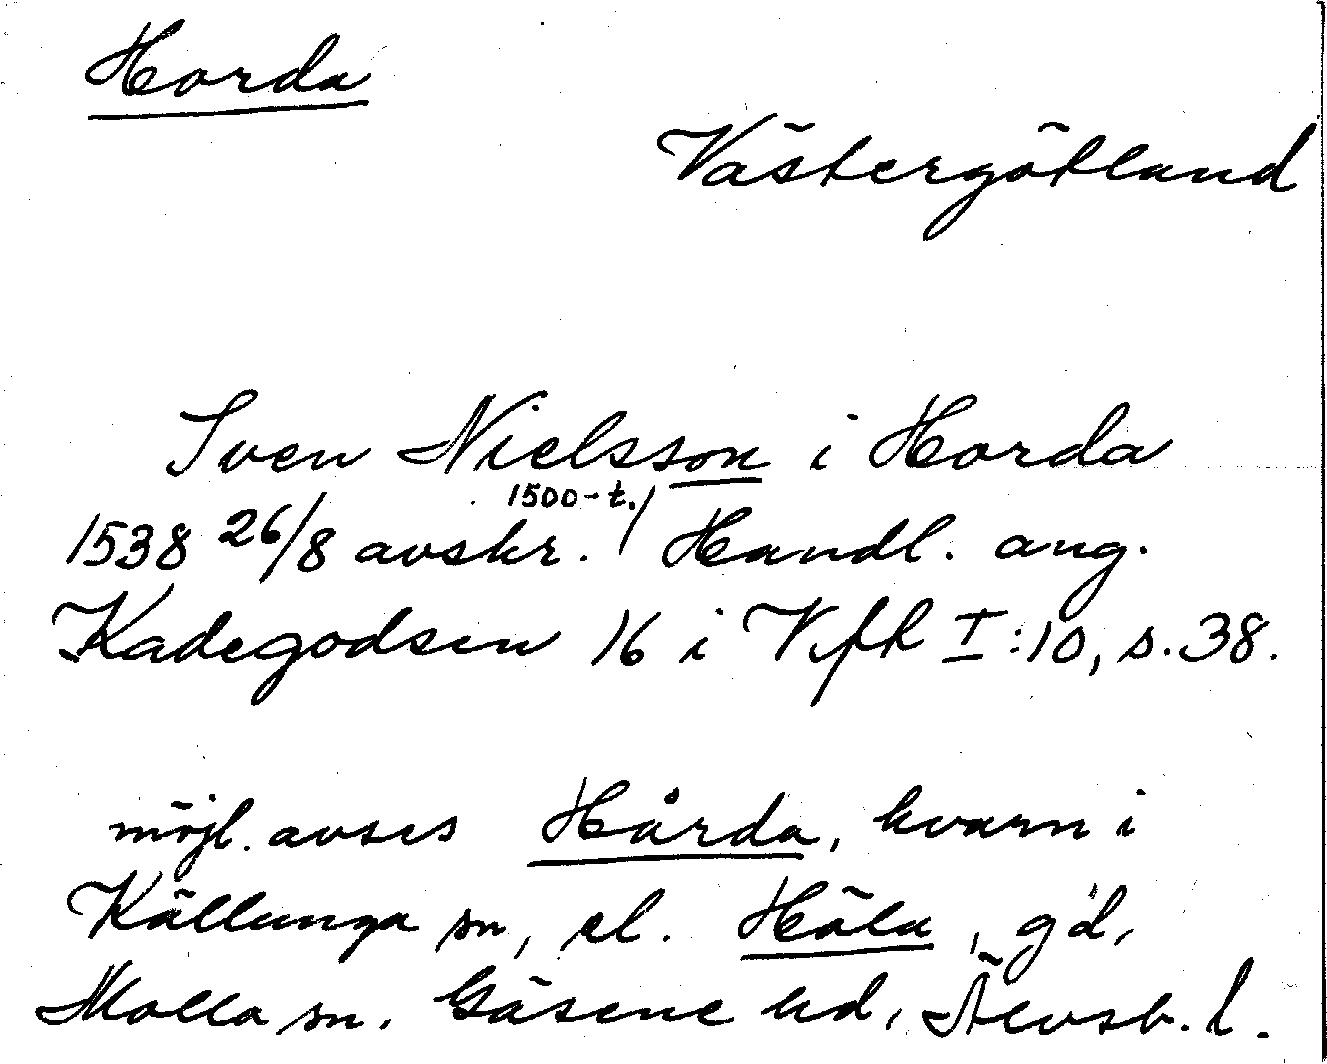 Horda
Västergötland
Sven Nielsson i Horda
1500-t.
1538 26/8 avskr. / Handl. ang.
Kadegodsen 16 i Vfk I:10, s. 38.
möjl. avses Hårda, kvarn i
Källunga sn, el. Höla, gd,
Molla sn. Gäsene hd, Älvsb. l.